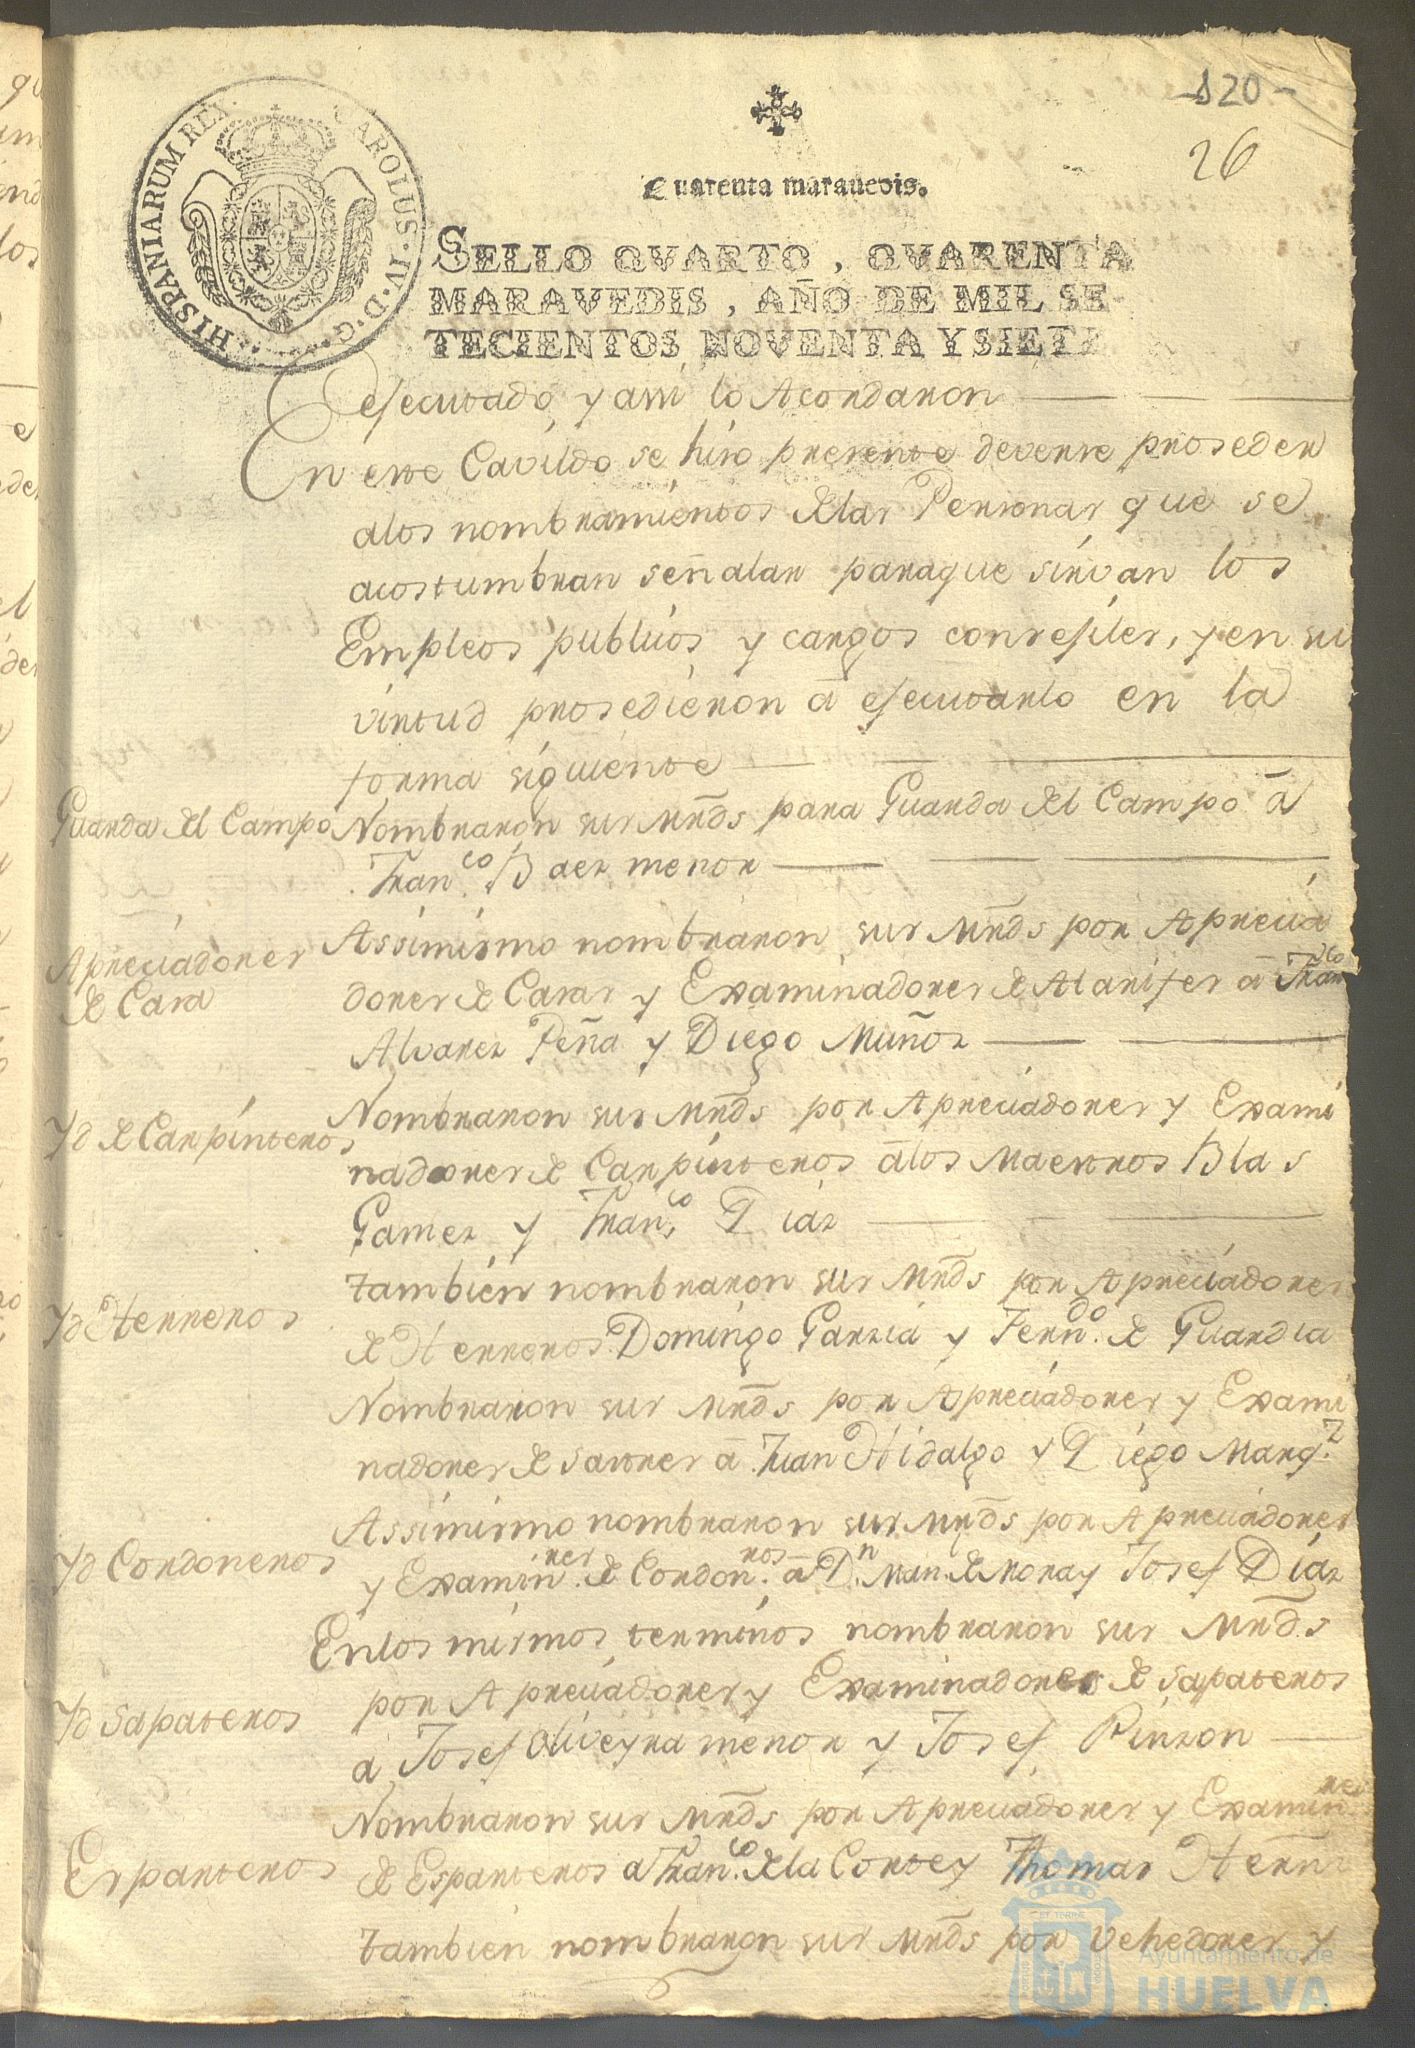 -120-
26
HISPANIARUM REX. CAROLUS·IV·D·G·
Quarenta marauedis.
SELLO QVARTO, QVARENTA
MARAVEDIS, AÑO DE MIL SE-
TECIENTOS NOVENTA Y SIETE
efecutado, y assi lo Acordaron
En este Cavildo se hiso presente deverse proseder
alos nombramientos delas Personas que se
acostumbran señalar paraque sirvan los
Empleos publicos y cargos consejiles, y en su
virtud prosedieron a efecutarlo en la
forma siguiente
Guarda del Campo
Nombraron sus Mrds para Guarda del Campo a
Franco. Baez menor
Apreciadores
de Casa
Assimismo nombraron sus Mrds por Aprecia
dores de Casas y Examinadores de Alarifes a Franco
Alvarez Peña y Diego Muñoz
Yd de Carpinteros
Nombraron sus Mrds por Apreciadores y Exami
nadores de Carpinteros alos Maestros Blas
Gamez y Franco. Diaz
Yd Herreros
tambien nombraron sus Mrds por Apreciadores
de Herreros Domingo Garzia y Ferndo. de Guardia
Nombraron sus Mrds por Apreciadores y Exami
nadores de Sastres a Juan Hidalgo y Diego Marqz.
Yd Cordoneros
Assimismo nombraron sus Mrds por Apreciadores
y Examinres. de Cordonros. a Dn. Man. de Mora y Josef Diaz
Yd Sapateros
Enlos mismos terminos nombraron sus Mrds
por Apreciadores y Examinadores de Sapateros
a Josef Oliveyra menor y Josef Pinzon
Esparteros
Nombraron sus Mrds por Apreciadores y Examinres
de Esparteros a Franco. dela Corte y Thomas Hern
tambien nombraron sus Mrds por Vehedores y
Ayuntamiento de
HUELVA